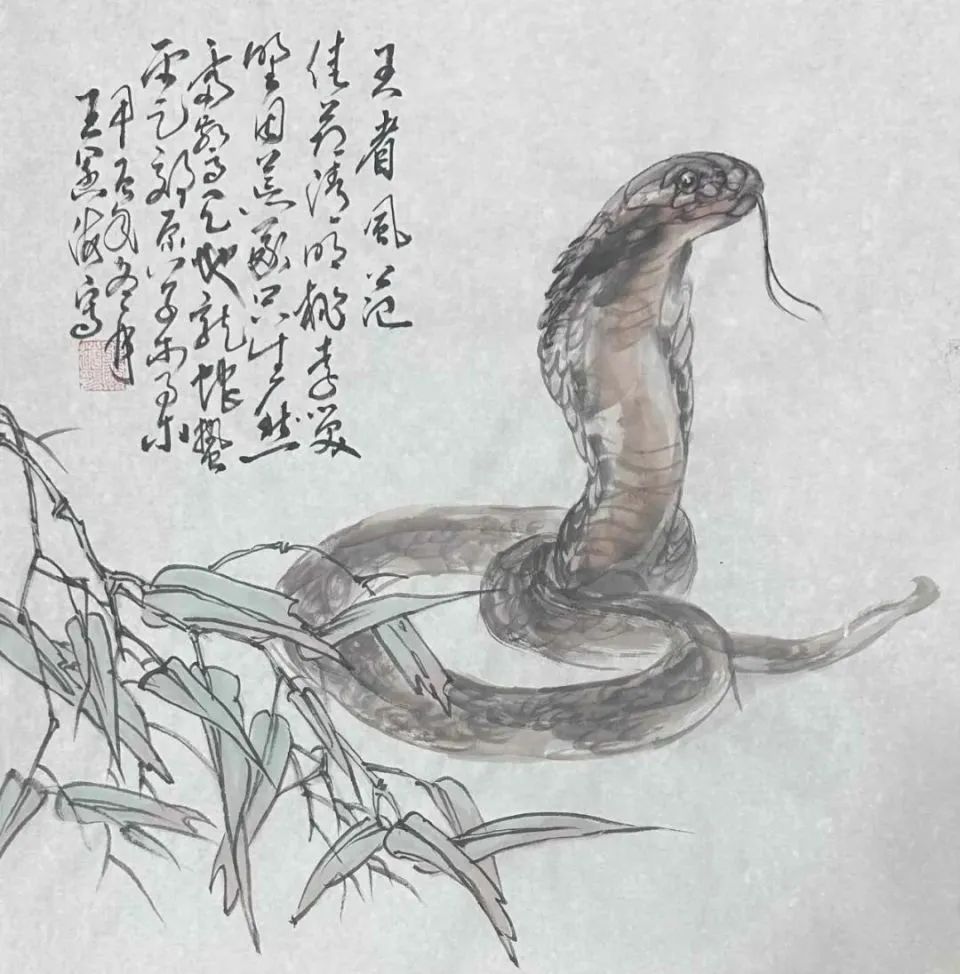 王者風范
佳节清明桃李笑
野田荒冢只生愁
雷惊天地龍蛇蛰
雨足郊原草木柔
甲辰年冬月
王海寫